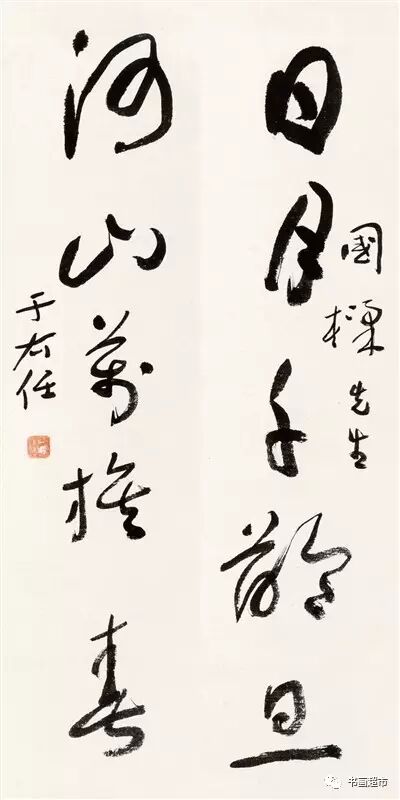 國樑先生
日月千齡旦
河山萬族春
于右任
书画超市